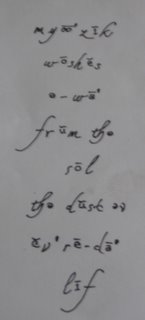 myo͞o'zĭk
wŏshĕs
ə-wā'
frŭm thə
sōl
thə dŭst əv
ĕv'rē-dā'
līf